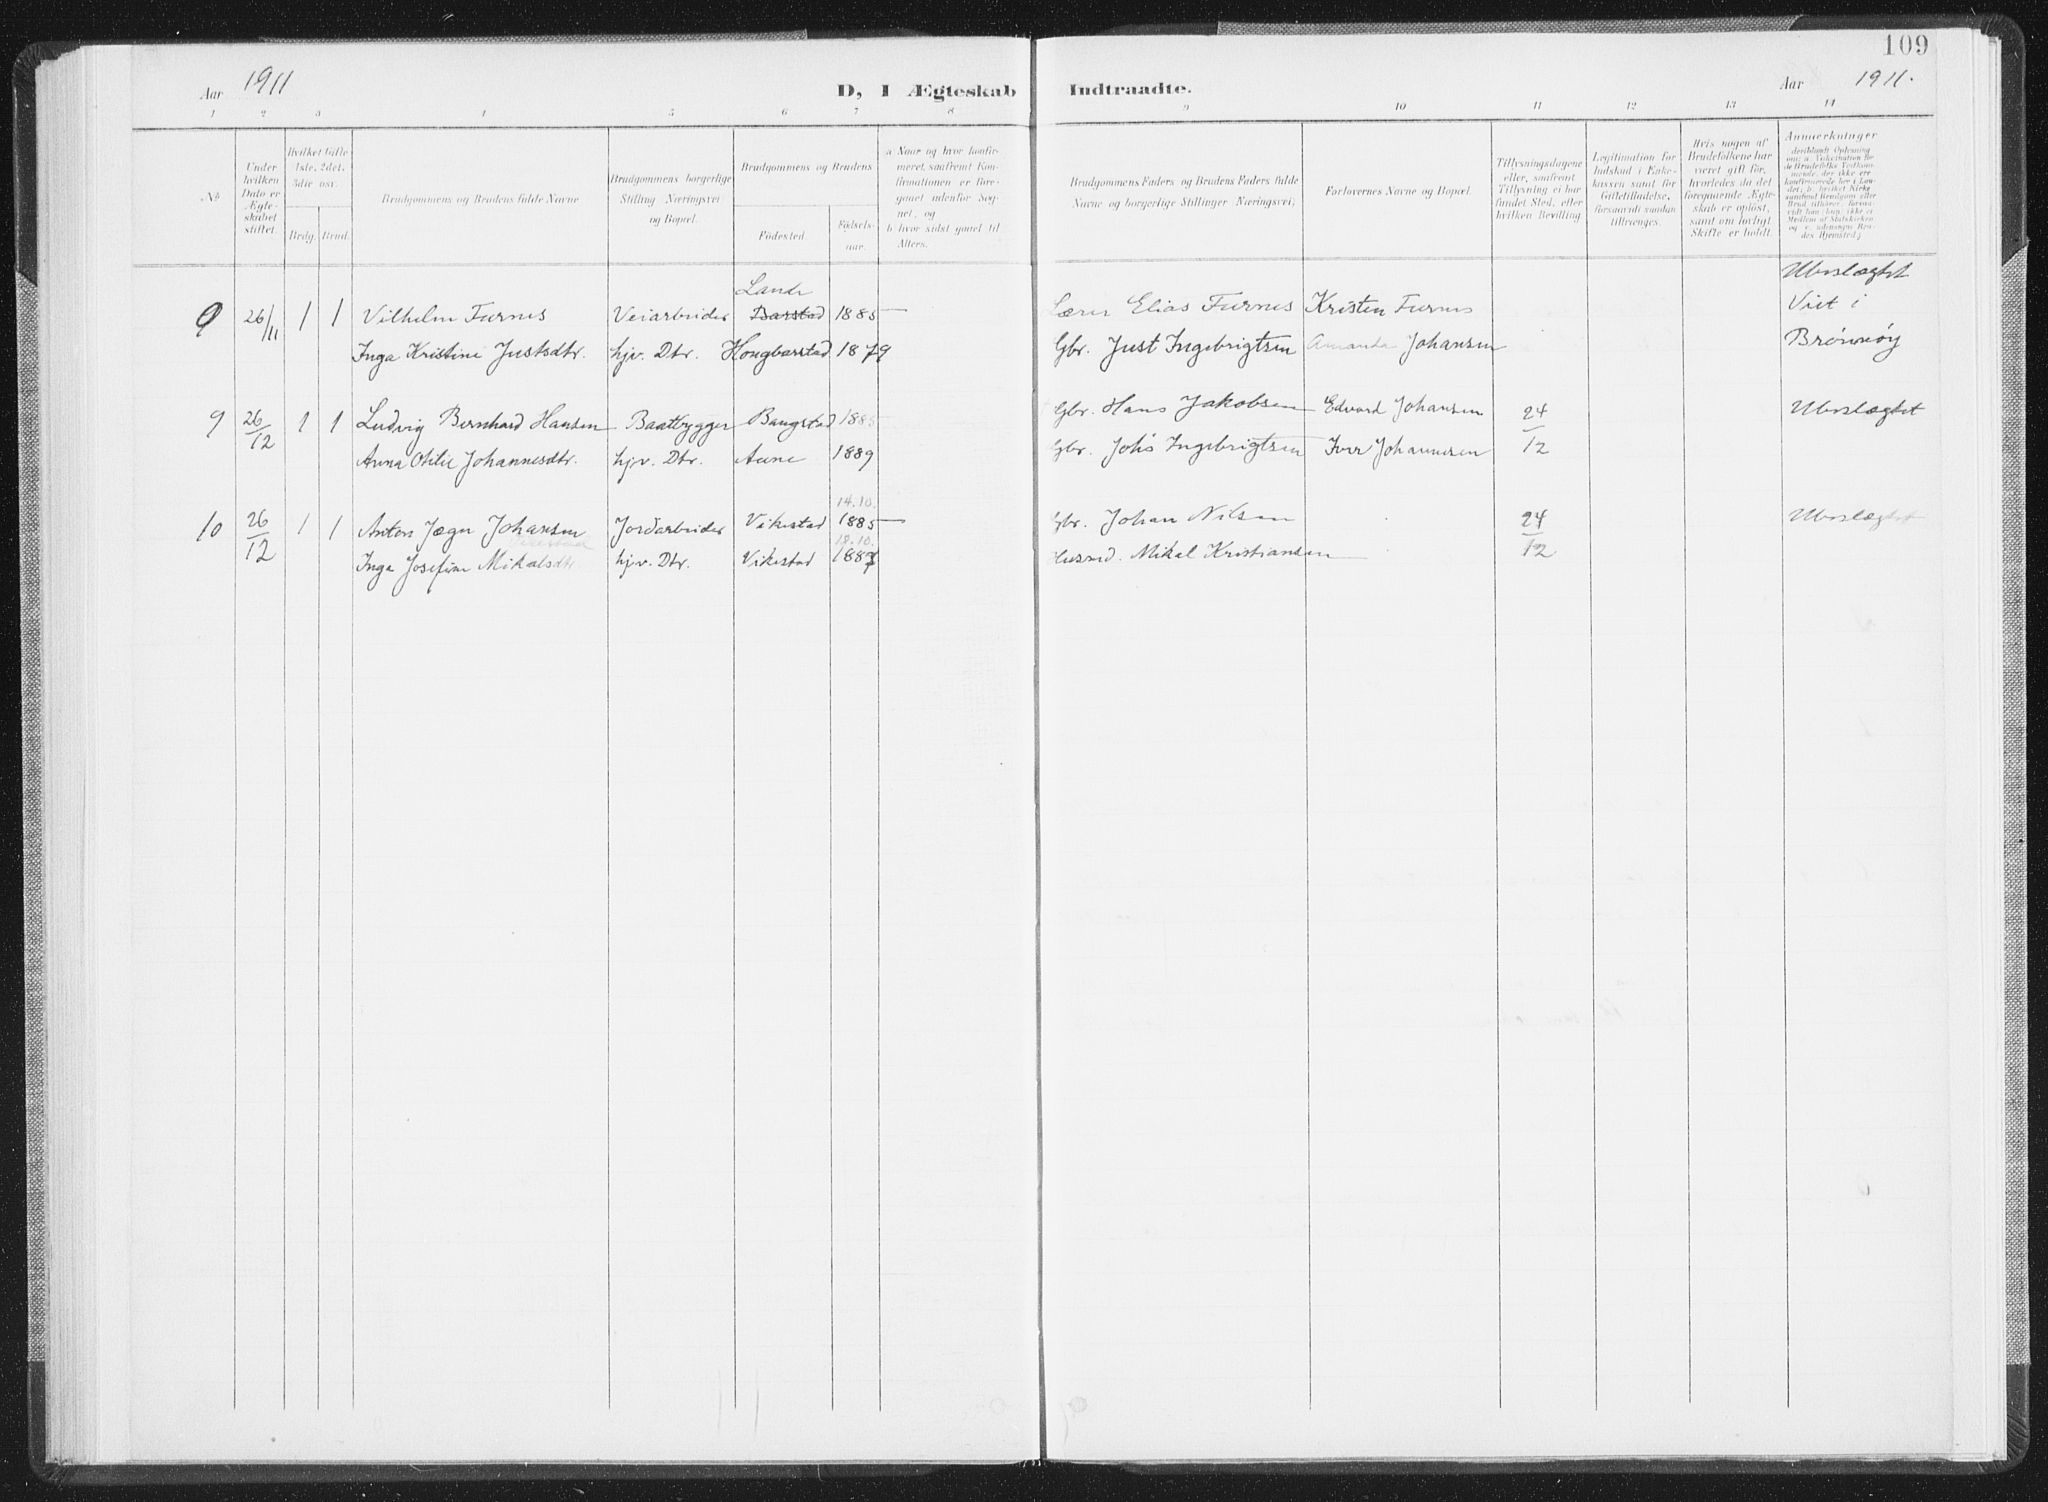 109
Aar 1911
D, I Ægteskab Indtraadte.
Aar 1911.
1 2 3 4 5 6 7 8 9 10 11 12 13 14
No
Under hvilken Dato er Ægteskabet stiftet.
Hvilket Gifte 1ste, 2det, 3die osv.
Brdg. Brud.
Brudgommens og Brudens fulde Navne
Brudgommens borgerlige Stilling Næringsvei og Bopæl.
Brudgommens og Brudens
Fødested. Fødselsaar.
a Naar og hvor konfirmeret, saafremt Konfirmationen er foregaaet udenfor Sognet, og b hvor sidst gaaet til Alters.
Brudgommens Faders og Brudens Faders fulde Navne og borgerlige Stillinger Næringsvei,
Forlovernes Navne og Bopæl.
Tillysningsdagene eller, saafremt Tillysning ei har fundet Sted, efter hvilken Bevilling.
Legitimation for Indskud i Enkekassen samt for Giftetilladelse, forsaavidt saadan tiltrænges.
Hvis nogen af Brudefolkene har været gift før, hvorledes da det foregaaende Ægteskab er opløst, samt om lovligt Skifte er holdt.
Anmærkninger
Lande Ubeslægtet
9 26/11 1 1 Vilhelm Furnes Veiarbeider Barstad 1885 — Lærer Elias Furnes Kristen Furnes Viet i
Inga Kristine Justsdtr. hjv. Dtr. Hongbarstad 1879 Gbr. Just Ingebrigtsen Amanda Johansen Brønnøy
9 26/12 1 1 Ludvig Bernhard Hansen Baatbygger Bangstad 1885 Gbr. Hans Jakobsen Edvard Johansen 24/12 Ubeslægtet
Anna Otilie Johannesdtr. hjv. Dtr. Aune 1889 Gbr. Johs Ingebrigtsen Iver Johannesen
14.10.
10 26/12 1 1 Anton Jæger Johansen Jordarbeider Vikestad 1885 — Gbr. Johan Nilsen 24/12 Ubeslægtet
Vikestad 18.10.
Inga Josefine Mikalsdtr. hjv. Dtr. Vikestad 1887 Husmd. Mikal Kristiansen —